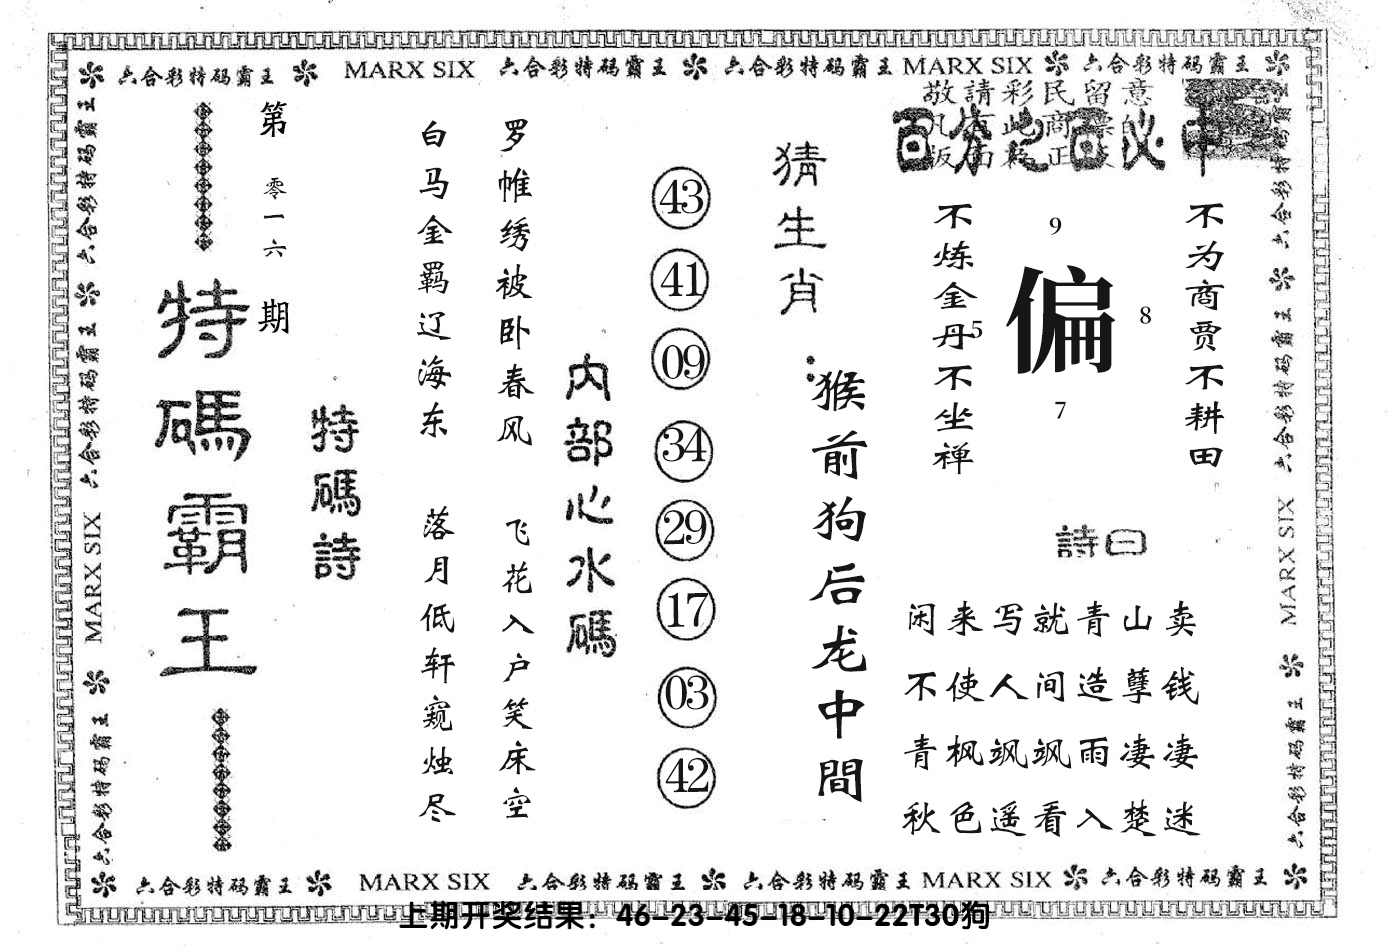 六合彩特码霸王 MARX SIX 六合彩特码霸王 六合彩特码霸王 MARX SIX 六合彩特码霸王
第零一六期
特碼霸王
特碼詩
白马金羁辽海东
罗帷绣被卧春风
落月低轩窥烛尽
飞花入户笑床空
内部心水碼
43
41
09
34
29
17
03
42
猜生肖:
猴前狗后龙中間
敬請彩民留意
百分之百必中
不炼金丹不坐禅
9
5
偏
8
7
不为商贾不耕田
詩曰
闲来写就青山卖
不使人间造孽钱
青枫飒飒雨凄凄
秋色遥看入楚迷
六合彩特码霸王
六合彩特码霸王
MARX SIX
六合彩特码霸王
六合彩特码霸王
六合彩特码霸王
MARX SIX
六合彩特码霸王
六合彩特码霸王 MARX SIX 六合彩特码霸王 六合彩特码霸王 MARX SIX 六合彩特码霸王
上期开奖结果：46-23-45-18-10-22T30狗